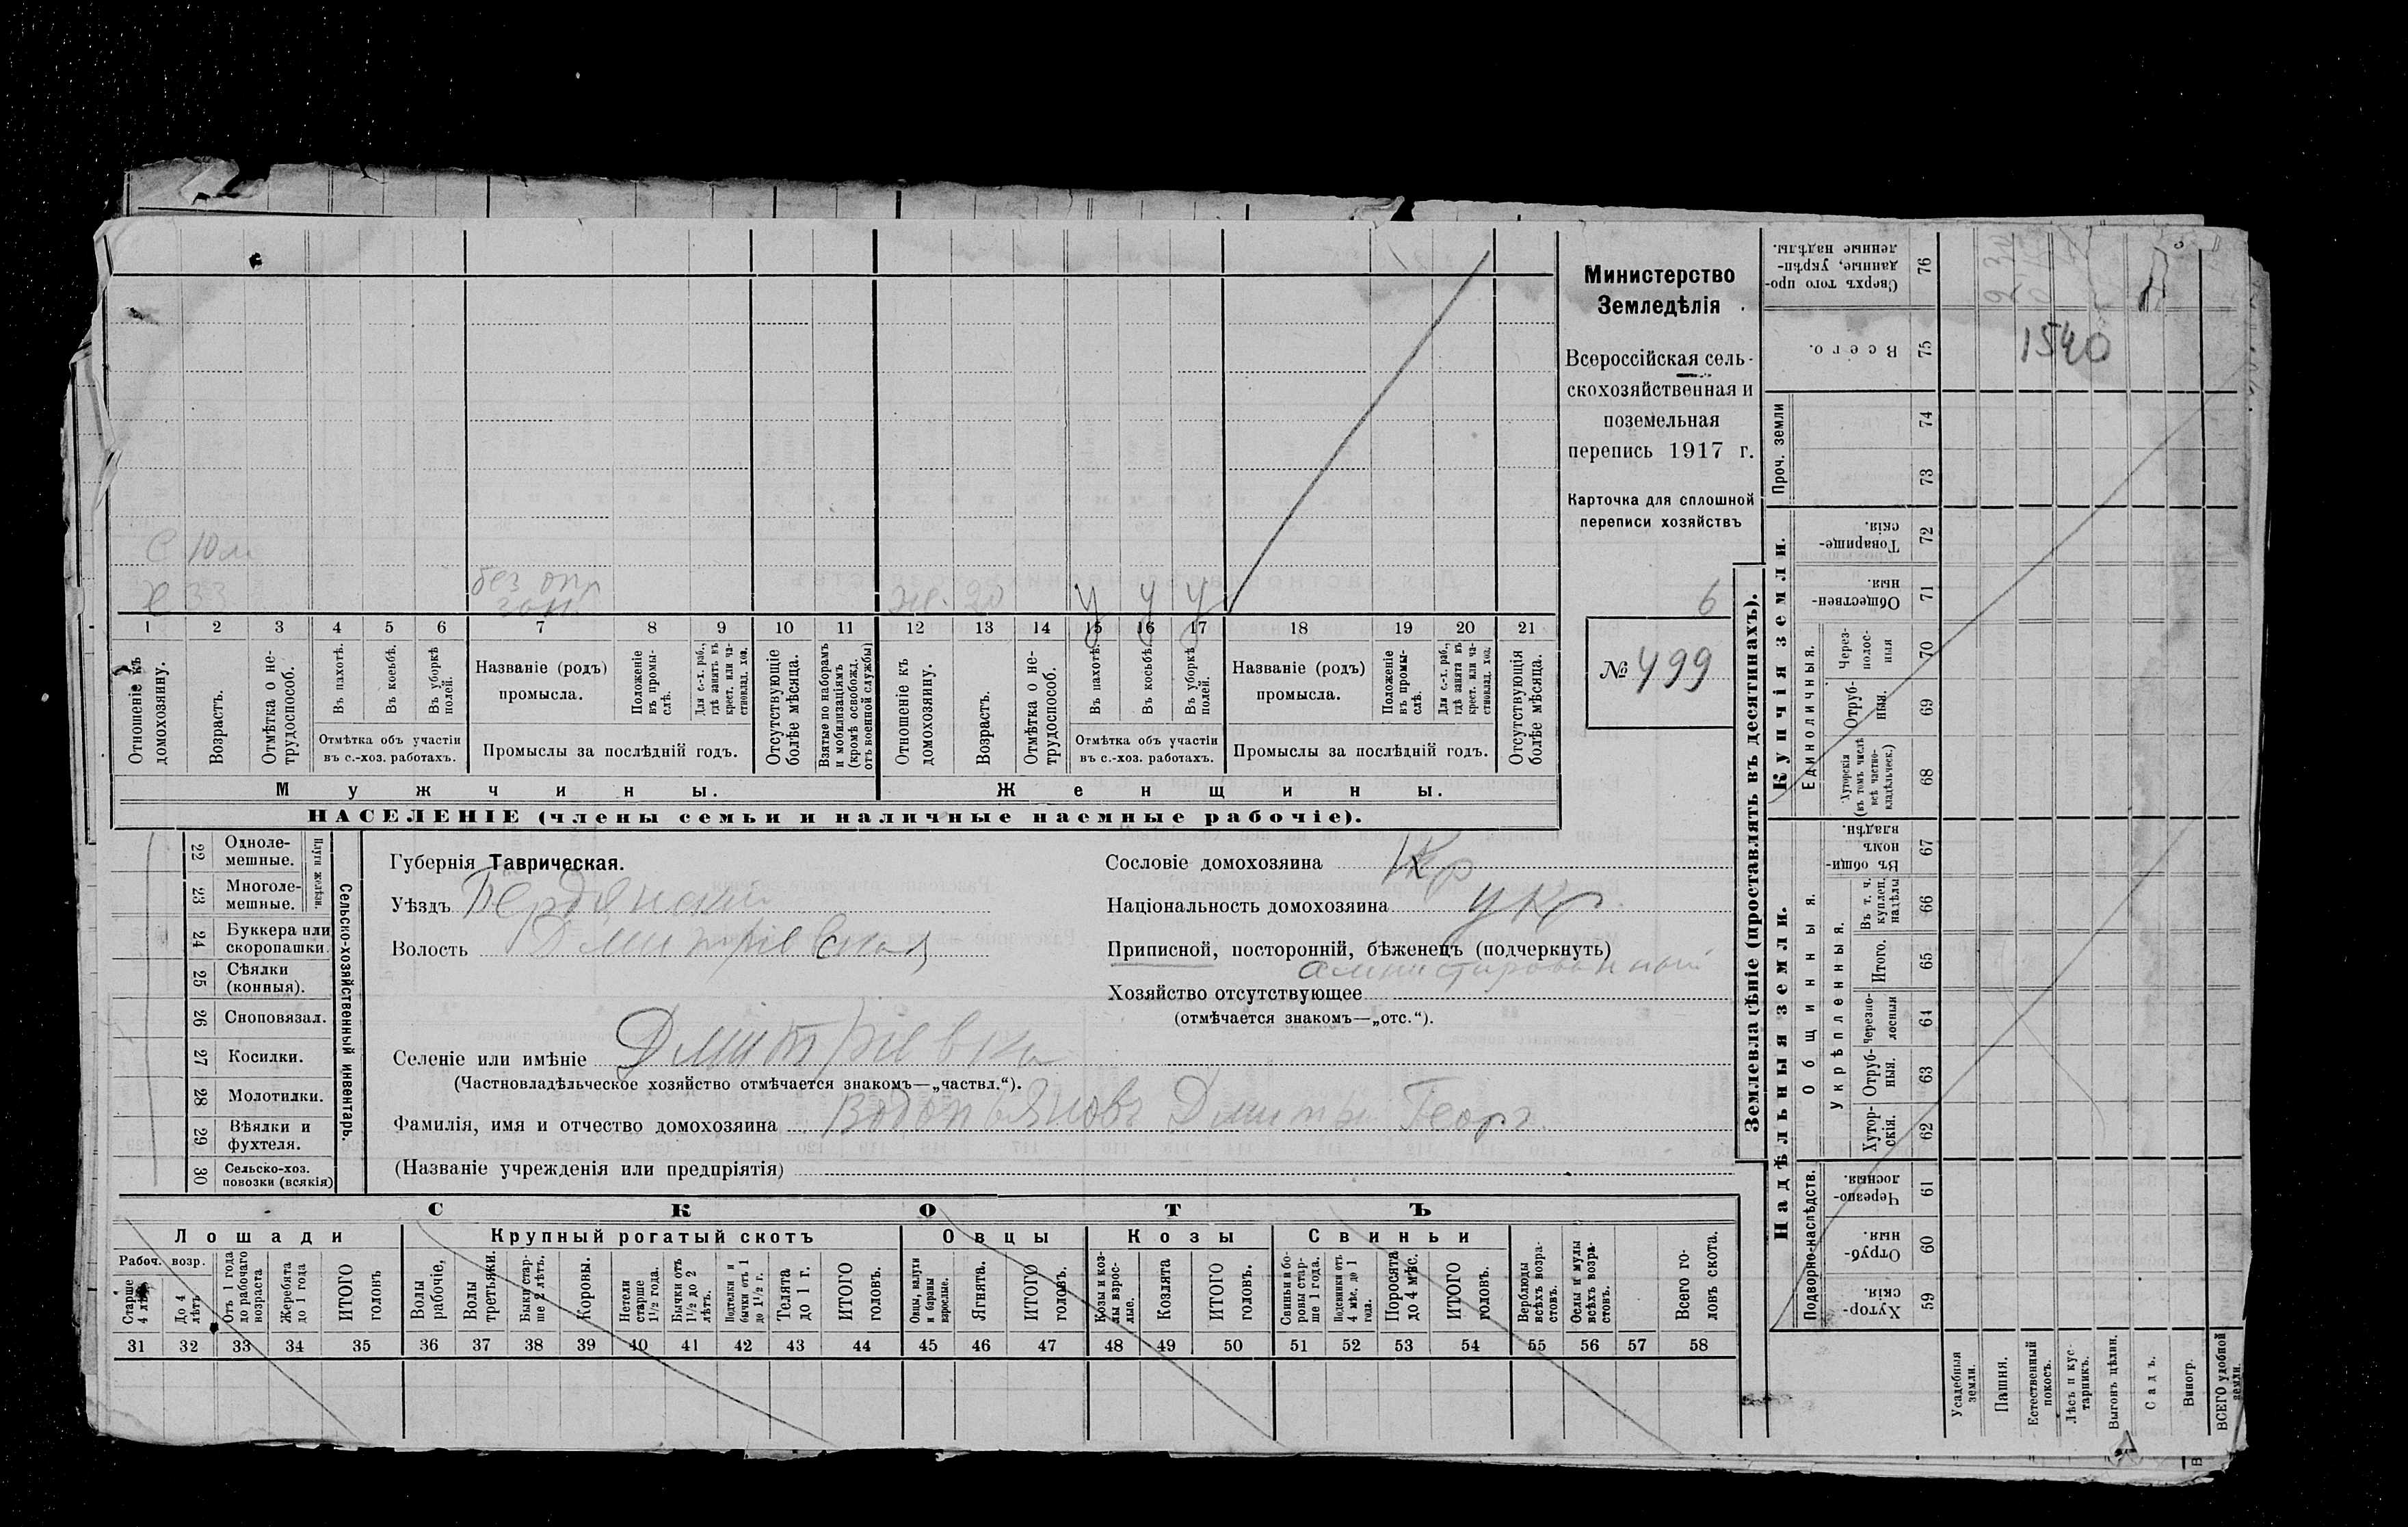 Министерство
Земледѣлія
Всероссійская сель-
скохозяйственная и
поземельная
перепись 1917 г.
Карточка для сплошной
переписи хозяйствъ
6
№ 499
С 10 м
Х 33
без опл
жен. 20 у у у
1 2 3 4 5 6 7 8 9 10 11 12 13 14 15 16 17 18 19 20 21
Отношеніе къ домохозяину.
Возрастъ.
Отмѣтка о не-трудоспособ.
Въ пахотѣ.
Въ косьбѣ.
Въ уборкѣ полей.
Отмѣтка объ участіи
въ с.-хоз. работахъ.
Названіе (родъ)
промысла.
Положеніе въ промы-слѣ.
Для с.-х. раб., гдѣ занятъ въ крест. или ча-стновлад. хоз.
Промыслы за послѣдній годъ.
Отсутствующіе болѣе мѣсяца.
Взятые по наборамъ и мобилизаціямъ (кромѣ освобожд. отъ военной службы)
Отношеніе къ домохозяину.
Возрастъ.
Отмѣтка о не-трудоспособ.
Въ пахотѣ.
Въ косьбѣ.
Въ уборкѣ полей.
Отмѣтка объ участіи
въ с.-хоз. работахъ.
Названіе (родъ)
промысла.
Положеніе въ промы-слѣ.
Для с.-х. раб., гдѣ занята въ крест. или ча-стновлад. хоз.
Промыслы за послѣдній годъ.
Отсутствующія болѣе мѣсяца.
Мужчины. Женщины.
НАСЕЛЕНІЕ (члены семьи и наличные наемные рабочіе).
22 Одноле-мешные.
23 Многоле-мешные.
Плуги желѣзн.
24 Буккера или скоропашки
25 Сѣялки (конныя).
26 Сноповязал.
27 Косилки.
28 Молотилки.
29 Вѣялки и фухтеля.
30 Сельско-хоз. повозки (всякія)
Сельско-хозяйственный инвентарь.
Губернія Таврическая.
Уѣздъ Бердянский
Волость Дмитріевская
Селеніе или имѣніе Дмитріевка
(Частновладѣльческое хозяйство отмѣчается знакомъ—„частвл.“).
Фамилія, имя и отчество домохозяина Водопьяновъ Дмитрий Георг.
(Названіе учрежденія или предпріятія)
Сословіе домохозяина Кр
Національность домохозяина укр.
Приписной, посторонній, бѣженецъ (подчеркнуть)
амнистированный
Хозяйство отсутствующее
(отмѣчается знакомъ—„отс.“).
СКОТЪ
Лошади Крупный рогатый скотъ Овцы Козы Свиньи
Рабоч. возр.
Старше 4 лѣтъ
До 4 лѣтъ
Отъ 1 года до рабочаго возраста
Жеребята до 1 года
ИТОГО головъ
Волы рабочіе.
Волы третьяки.
Быки стар-ше 2 лѣтъ.
Коровы.
Нетели старше 1½ года.
Бычки отъ 1½ до 2 лѣтъ.
Подтелки и бычки отъ 1 до 1½ г.
Телята до 1 г.
ИТОГО головъ.
Овцы, валухи и бараны взрослые.
Ягнята.
ИТОГО головъ.
Козы и коз-лы взрос-лые.
Козлята
ИТОГО головъ.
Свиньи и бо-ровы стар-ше 1 года.
Подсвинки отъ 4 мѣс. до 1 года.
Поросята до 4 мѣс.
ИТОГО головъ.
Верблюды всѣхъ возра-стовъ.
Ослы и мулы всѣхъ возра-стовъ.
Всего го-ловъ скота.
31 32 33 34 35 36 37 38 39 40 41 42 43 44 45 46 47 48 49 50 51 52 53 54 55 56 57 58
Землевладѣніе (проставлять въ десятинахъ).
Надѣльныя земли. Купчія земли. Проч. земли
Подворно-наслѣдств. Общинныя. Единоличныя.
Укрѣпленныя.
Сверхъ того про-данные, укрѣп-ленные надѣлы. 76
Всего. 75
1540
74
73
Товарище-скія. 72
Обществен-ныя. 71
Через-полос-ныя 70
Отруб-ныя. 69
Хуторскія (въ томъ числѣ всѣ частно-владѣльческ.) 68
Въ общин-номъ владѣн. 67
Въ т. ч. куплен. надѣлы 66
Итого. 65
Черезпо-лосныя 64
Отруб-ныя. 63
Хутор-скія. 62
Черезпо-лосныя. 61
Отруб-ныя. 60
Хутор-скія. 59
Усадебныя земли.
Пашня.
Естественный покосъ.
Лѣсъ и кус-тарникъ.
Выгонъ цѣлин.
Садъ.
Виногр.
ВСЕГО удобной земли.